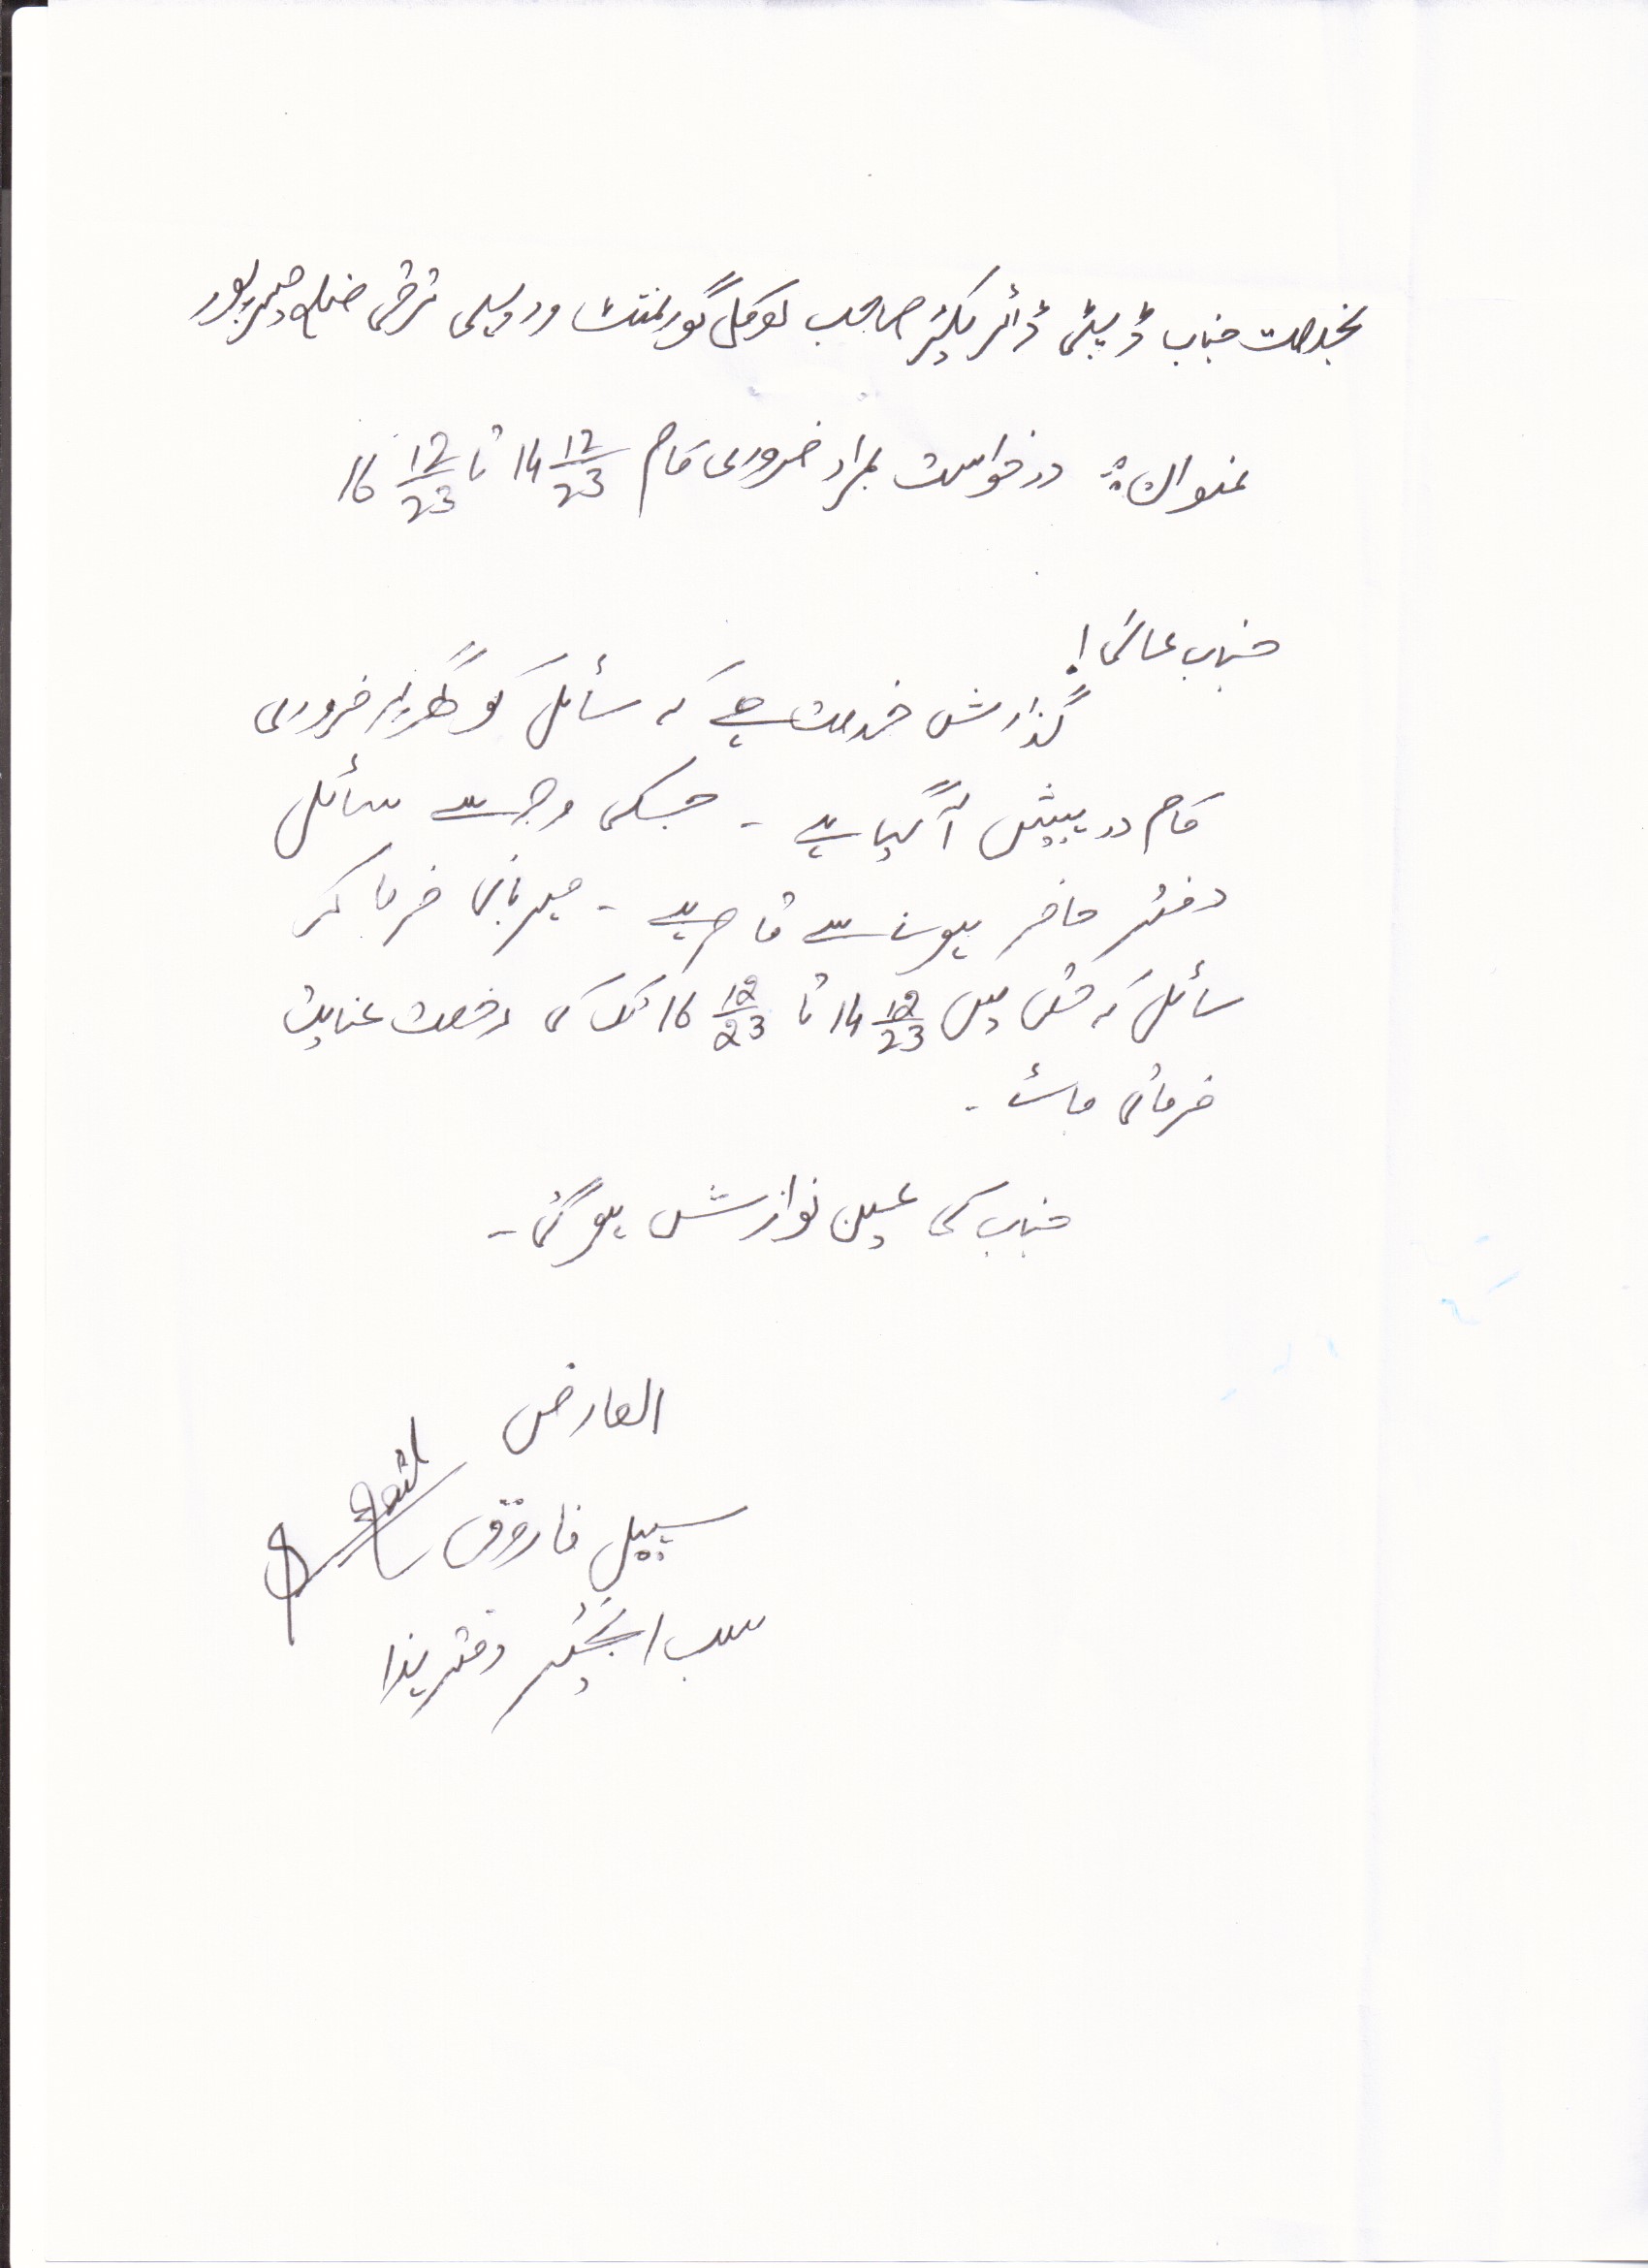 بخدمت جناب ڈپٹی ڈائریکٹر صاحب لوکل گورنمنٹ ودیہی ترقی ضلع میرپور
عنوان: درخواست بمراد ضروری کام 14 12/23 تا 16 12/23
جناب عالی!
گذارش خدمت ہے کہ سائل کو گھریلو ضروری
کام درپیش آ گیا ہے ۔ جسکی وجہ سے سائل
دفتر حاضر ہونے سے قاصر ہے ۔ مہربانی فرما کر
سائل کے حق میں 14 12/23 تا 16 12/23 تک کی رخصت عنایت
فرمائی جائے ۔
جناب کی عین نوازش ہو گی ۔
العارض
سہیل فاروق
سب انجینئر دفتر ہذا